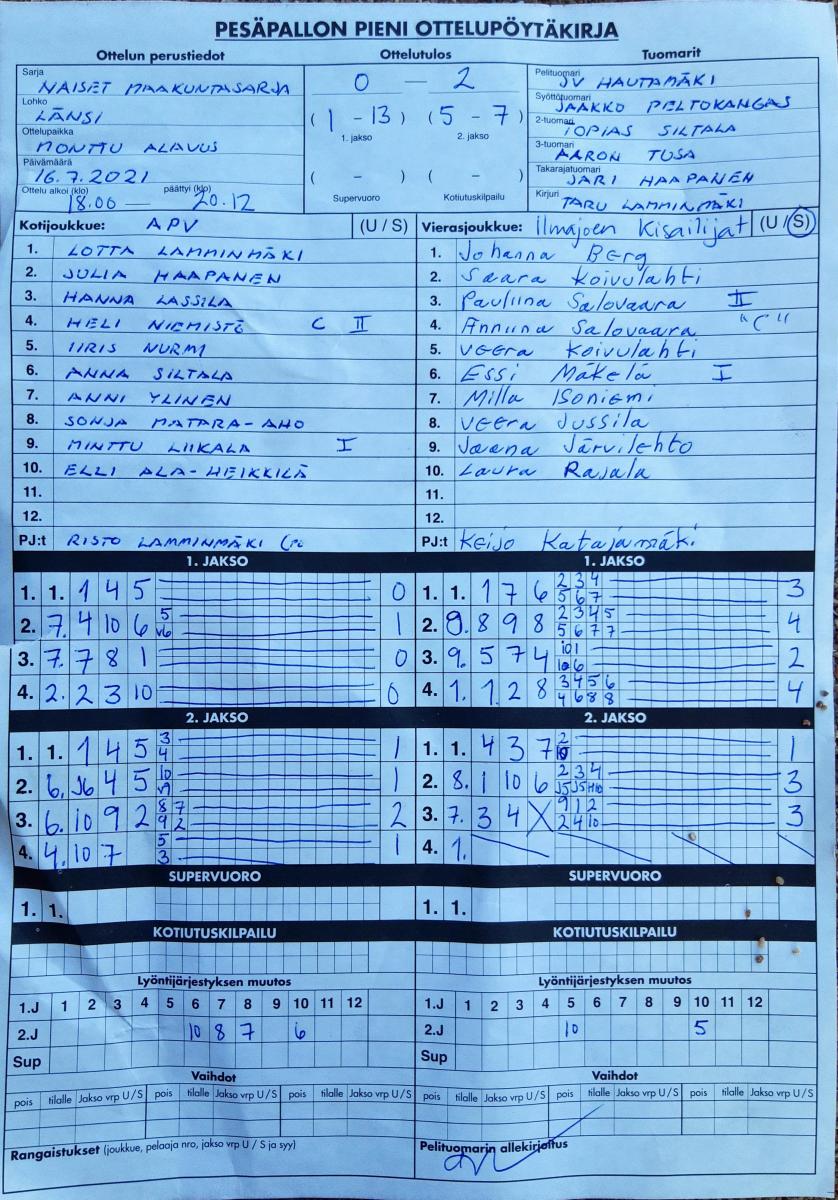 PESÄPALLON PIENI OTTELUPÖYTÄKIRJA
Ottelun perustiedot
Sarja
NAISET MAAKUNTASARJA
Lohko
LÄNSI
Ottelupaikka
MONTTU ALAVUS
Päivämäärä
16.7.2021
Ottelu alkoi (klo) päättyi (klo)
18.00 — 20.12
Ottelutulos
0 — 2
( 1 - 13 ) ( 5 - 7 )
1. jakso 2. jakso
( - ) ( - )
Supervuoro Kotiutuskilpailu
Tuomarit
Pelituomari
JV HAUTAMÄKI
Syöttötuomari
JAAKKO PELTOKANGAS
2-tuomari
TOPIAS SILTALA
3-tuomari
AARON TUSA
Takarajatuomari
JARI HAAPANEN
Kirjuri
TARU LAMMINMÄKI
Kotijoukkue: APV (U / S)
1. LOTTA LAMMINMÄKI
2. JULIA HAAPANEN
3. HANNA LASSILA
4. HELI NIEMISTÖ C II
5. IIRIS NURMI
6. ANNA SILTALA
7. ANNI YLINEN
8. SONJA MATARA-AHO
9. MINTTU LIIKALA I
10. ELLI ALA-HEIKKILÄ
11.
12.
PJ:t RISTO LAMMINMÄKI
Vierasjoukkue: Ilmajoen Kisailijat (U / S)
1. Johanna Berg
2. Saara Koivulahti
3. Pauliina Salovaara II
4. Anniina Salovaara "C"
5. Veera Koivulahti
6. Essi Mäkelä I
7. Milla Isoniemi
8. Veera Jussila
9. Jaana Järvilehto
10. Laura Rajala
11.
12.
PJ:t Keijo Katajamäki
1. JAKSO
1. 1. 1 4 5 0
2. 7. 4 10 6 5 v6 1
3. 7. 7 8 1 0
4. 2. 2 3 10 0
1. JAKSO
1. 1. 1 7 6 2 3 4 3
5 6 7
2. 9. 8 9 8 2 3 4 5 4
5 6 7 7
3. 9. 5 7 4 10 1 2
10 6
4. 1. 1 2 8 3 4 5 6 4
4 6 8 8
2. JAKSO
1. 1. 1 4 5 3 1
4
2. 6. J6 4 5 10 1
v9
3. 6. 10 9 2 8 7 2
9 2
4. 4. 10 7 5 1
3
2. JAKSO
1. 1. 4 3 7 2 1
10
2. 8. 1 10 6 2 3 4 3
J5 J5 H10
3. 7. 3 4 X 9 1 2 3
2 4 10
4. 1.
SUPERVUORO
1. 1.
SUPERVUORO
1. 1.
KOTIUTUSKILPAILU
KOTIUTUSKILPAILU
Lyöntijärjestyksen muutos
1.J 1 2 3 4 5 6 7 8 9 10 11 12
2.J 10 8 7 6
Sup
Lyöntijärjestyksen muutos
1.J 1 2 3 4 5 6 7 8 9 10 11 12
2.J 10 5
Sup
Vaihdot
pois tilalle Jakso vrp U / S pois tilalle Jakso vrp U / S
Vaihdot
pois tilalle Jakso vrp U / S pois tilalle Jakso vrp U / S
Rangaistukset (joukkue, pelaaja nro, jakso vrp U / S ja syy)
Pelituomarin allekirjoitus